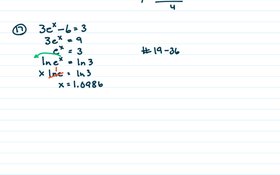 4
17) 3eˣ - 6 = 3
3eˣ = 9
eˣ = 3
# 19-36
ln eˣ = ln 3
x ln e = ln 3
x = 1.0986